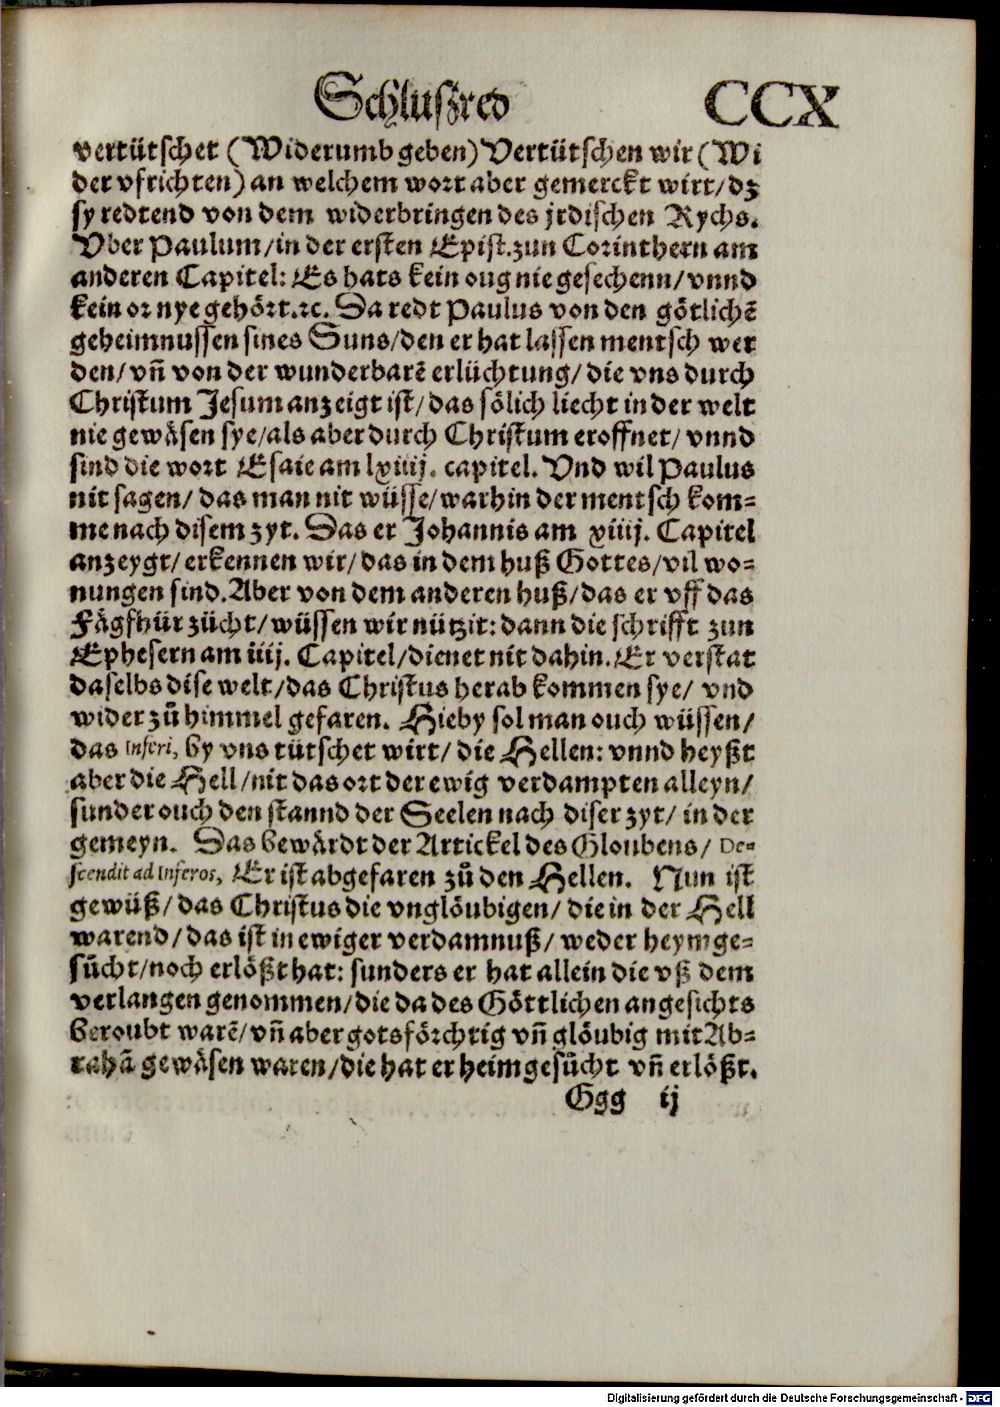 Schluſzred CCX
vertütſchet (Widerumb geben) Vertütſchen wir (Wi
der vfrichten) an welchem wort aber gemerckt wirt / dz
ſy redtend von dem widerbringen des jrdiſchen Rychs.
Vber Paulum / in der erſten Epiſt. zun Corinthern am
anderen Capitel: Es hats kein oug nie geſechenn / vnnd
kein or nye gehört. ꝛc. Da redt Paulus von den götlichẽ
geheimnuſſen ſines Suns / den er hat laſſen mentſch wer
den / vñ von der wunderbarẽ erlüchtung / die vns durch
Chriſtum Jeſum anzeigt iſt / das ſölich liecht in der welt
nie gewäſen ſye / als aber durch Chriſtum eroffnet / vnnd
ſind die wort Eſaie am lxiiij. capitel. Vnd wil Paulus
nit ſagen / das man nit wüſſe / warhin der mentſch kom⸗
me nach diſem zyt. Das er Johannis am xiiij. Capitel
anzeygt / erkennen wir / das in dem huß Gottes / vil wo⸗
nungen ſind. Aber von dem anderen huß / das er vff das
Fägfhür zücht / wüſſen wir nützit: dann die ſchrifft zun
Epheſern am iiij. Capitel / dienet nit dahin. Er verſtat
daſelbs diſe welt / das Chriſtus herab kommen ſye / vnd
wider zů himmel gefaren. Hieby ſol man ouch wüſſen /
das Inferi, by vns tütſchet wirt / die Hellen: vnnd heyßt
aber die Hell / nit das ort der ewig verdampten alleyn /
ſunder ouch den ſtannd der Seelen nach diſer zyt / in der
gemeyn. Das bewärdt der Artickel des Gloubens / De⸗
ſcendit ad Inferos, Er iſt abgefaren zů den Hellen. Nun iſt
gewüß / das Chriſtus die vnglöubigen / die in der Hell
warend / das iſt in ewiger verdamnuß / weder heymge⸗
ſůcht / noch erlößt hat: ſunders er hat allein die vß dem
verlangen genommen / die da des Göttlichen angeſichts
beroubt warẽ / vñ aber gotsförchtig vñ glöubig mit Ab⸗
rahã gewäſen waren / die hat er heimgeſůcht vñ erlößt.
Ggg ij
Digitalisierung gefördert durch die Deutsche Forschungsgemeinschaft - DFG